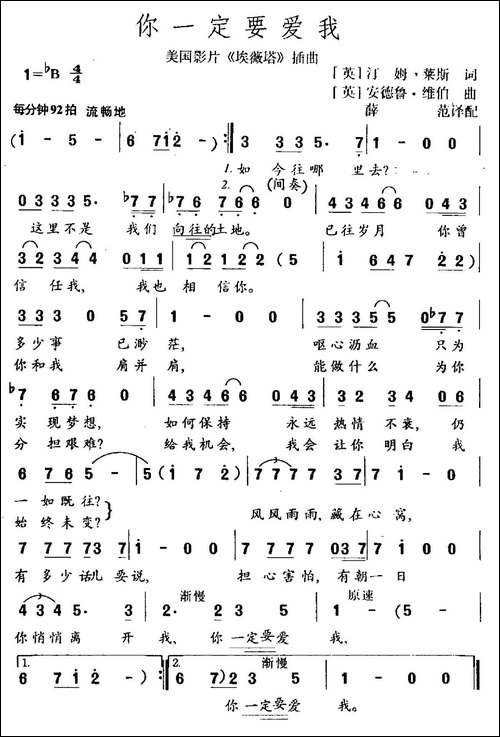 你一定要爱我
美国影片《埃薇塔》插曲
1=♭B 4/4
[英]汀姆·莱斯 词
[英]安德鲁·维伯 曲
每分钟92拍 流畅地
薛 范译配
(1 - 5 - | 6 712 - ) :‖ 3 3 3 5. 7 | 1 - 0 0
1.如今往哪里去?
2.(间奏)
0 3 3 3 5. ♭7 7 | ♭7 6 7 6 6 0 | 4 3 4 6 6 0 4 3
这里不是 我们 向往的土地。 已往岁月 你曾
3 2 3 4 4 0 1 1 | 1 2 1 2 2 - (5 | 1 6 4 7 2 2)
信任我, 我也相信你。
3 3 3 3 0 5 7 | 1 - 0 0 | 3 3 3 5 5 0 ♭7 7
多少事 已渺茫, 呕心沥血 只为
你和我 肩并肩, 能做什么 为你
♭7 6 7 6 0 | 4 3 4 6 6 0 4 6 | 3 2 3 4 0 6
实现梦想, 如何保持 永远热情不衰,仍
分担艰难? 给我机会, 我会让你明白 我
6 7 6 5 - | 5 (1 7 2) | 7 7 7 7 3 3 7 | 7 1 0 0
一如既往?
始终未变?
风风雨雨、藏在心窝,
7 7 7 7 3 7 | 1 - 0 0 | 7 7 7 7 0 3 7 | 7 1 0 0
有多少话儿要说, 担心害怕,有朝一日
渐慢 原速
4 3 4 5. 3 | 3 - - 2 | 2 3 5 | 1 - (5 -
你悄悄离开我、 你一定要爱我,
1. 2. 渐慢
6 7 1 2 - ) :‖ 6 7 2) 2 3 5 | 1 - 0 0 ‖
你一定要爱我。